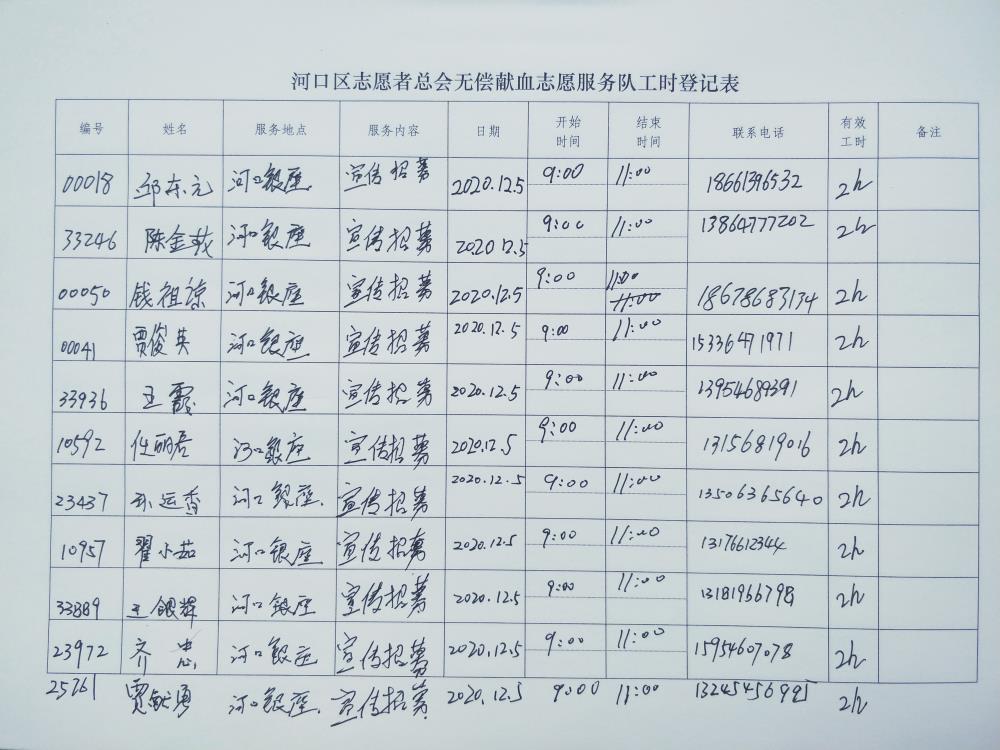 河口区志愿者总会无偿献血志愿服务队工时登记表
编号 姓名 服务地点 服务内容 日期 开始时间 结束时间 联系电话 有效工时 备注
00018 邱东元 河口银座 宣传招募 2020.12.5 9:00 11:00 18661396532 2h
33246 陈金 河口银座 宣传招募 2020.12.5 9:00 11:00 13864777202 2h
00050 钱祖谅 河口银座 宣传招募 2020.12.5 9:00 11:00 11:00 18678683134 2h
00041 贾俊英 河口银座 宣传招募 2020.12.5 9:00 11:00 15336471971 2h
33936 王霞 河口银座 宣传招募 2020.12.5 9:00 11:00 13954689391 2h
10592 任丽君 河口银座 宣传招募 2020.12.5 9:00 11:00 13156819016 2h
23437 孙运香 河口银座. 宣传招募 2020.12.5 9:00 11:00 13506365640 2h
10957 翟小茹 河口银座 宣传招募 2020.12.5 9:00 11:00 13176612344 2h
33889 王银辉 河口银座 宣传招募 2020.12.5 9:00 11:00 13181966798 2h
23972 齐忠 河口银座 宣传招募 2020.12.5 9:00 11:00 15954607078 2h
25761 贾敏勇 河口银座. 宣传招募. 2020.12.5 9:00 11:00 13245456995 2h